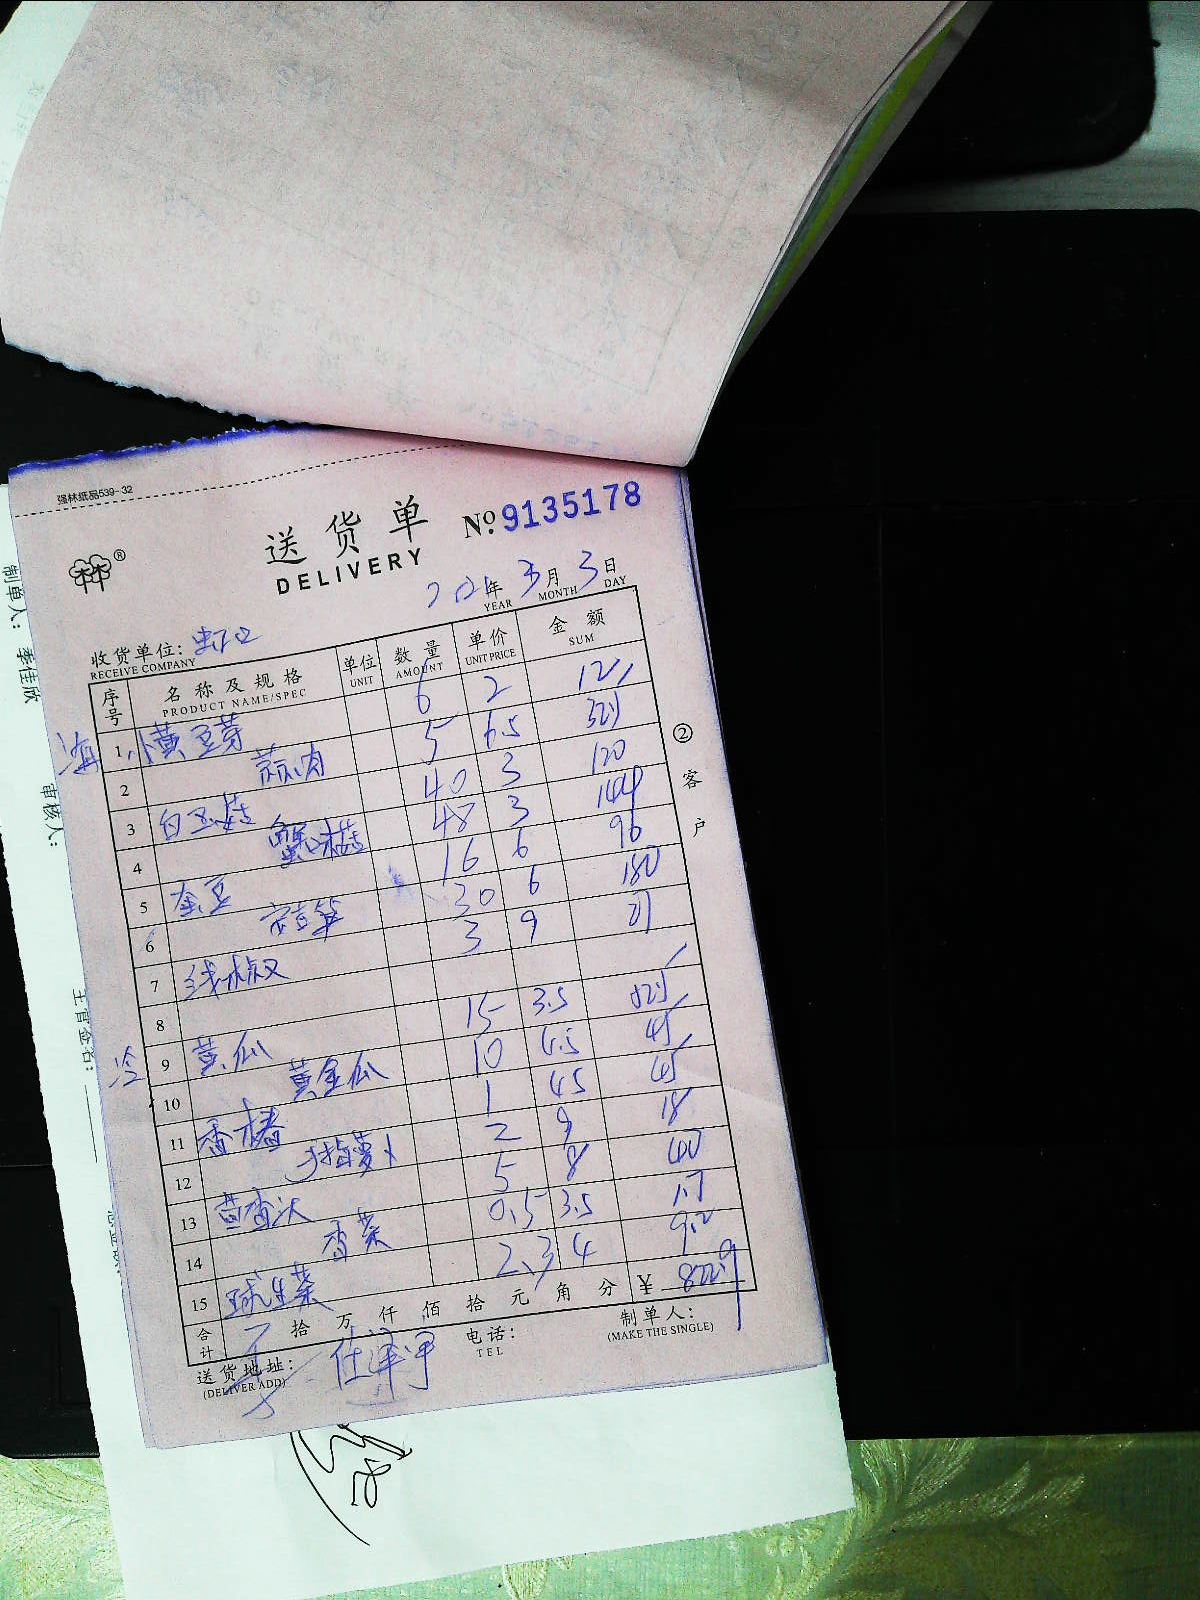 强林纸品539-32
送货单 №9135178
DELIVERY
年 3月 3日
YEAR MONTH DAY
收货单位: 虹口
RECEIVE COMPANY
序号 名称及规格 单位 数量 单价 金额
PRODUCT NAME/SPEC UNIT AMOUNT UNIT PRICE SUM
海 1 小黄豆芽 6 2 12
2 蒜肉 5 6.5 32.5
3 白玉菇 40 3 120
4 蟹味菇 48 3 144
5 蚕豆 16 6 96
6 30 6 180
7 线椒 3 9 27
8
冷 9 黄瓜 15 3.5 52.5
10 黄金瓜 10 4.5 45
11 香椿 1 45 45
12 手指萝卜 2 9 18
13 茴香 5 8 40
14 香菜 0.5 3.5 1.7
15 球生菜 2.3 4 9.2
合计 拾 万 仟 佰 拾 元 角 分 ¥ 822.9
送货地址: 电话: 制单人:
(DELIVER ADD) TEL (MAKE THE SINGLE)
②客户
制单人: 李佳欣
审核人:
主管签名: